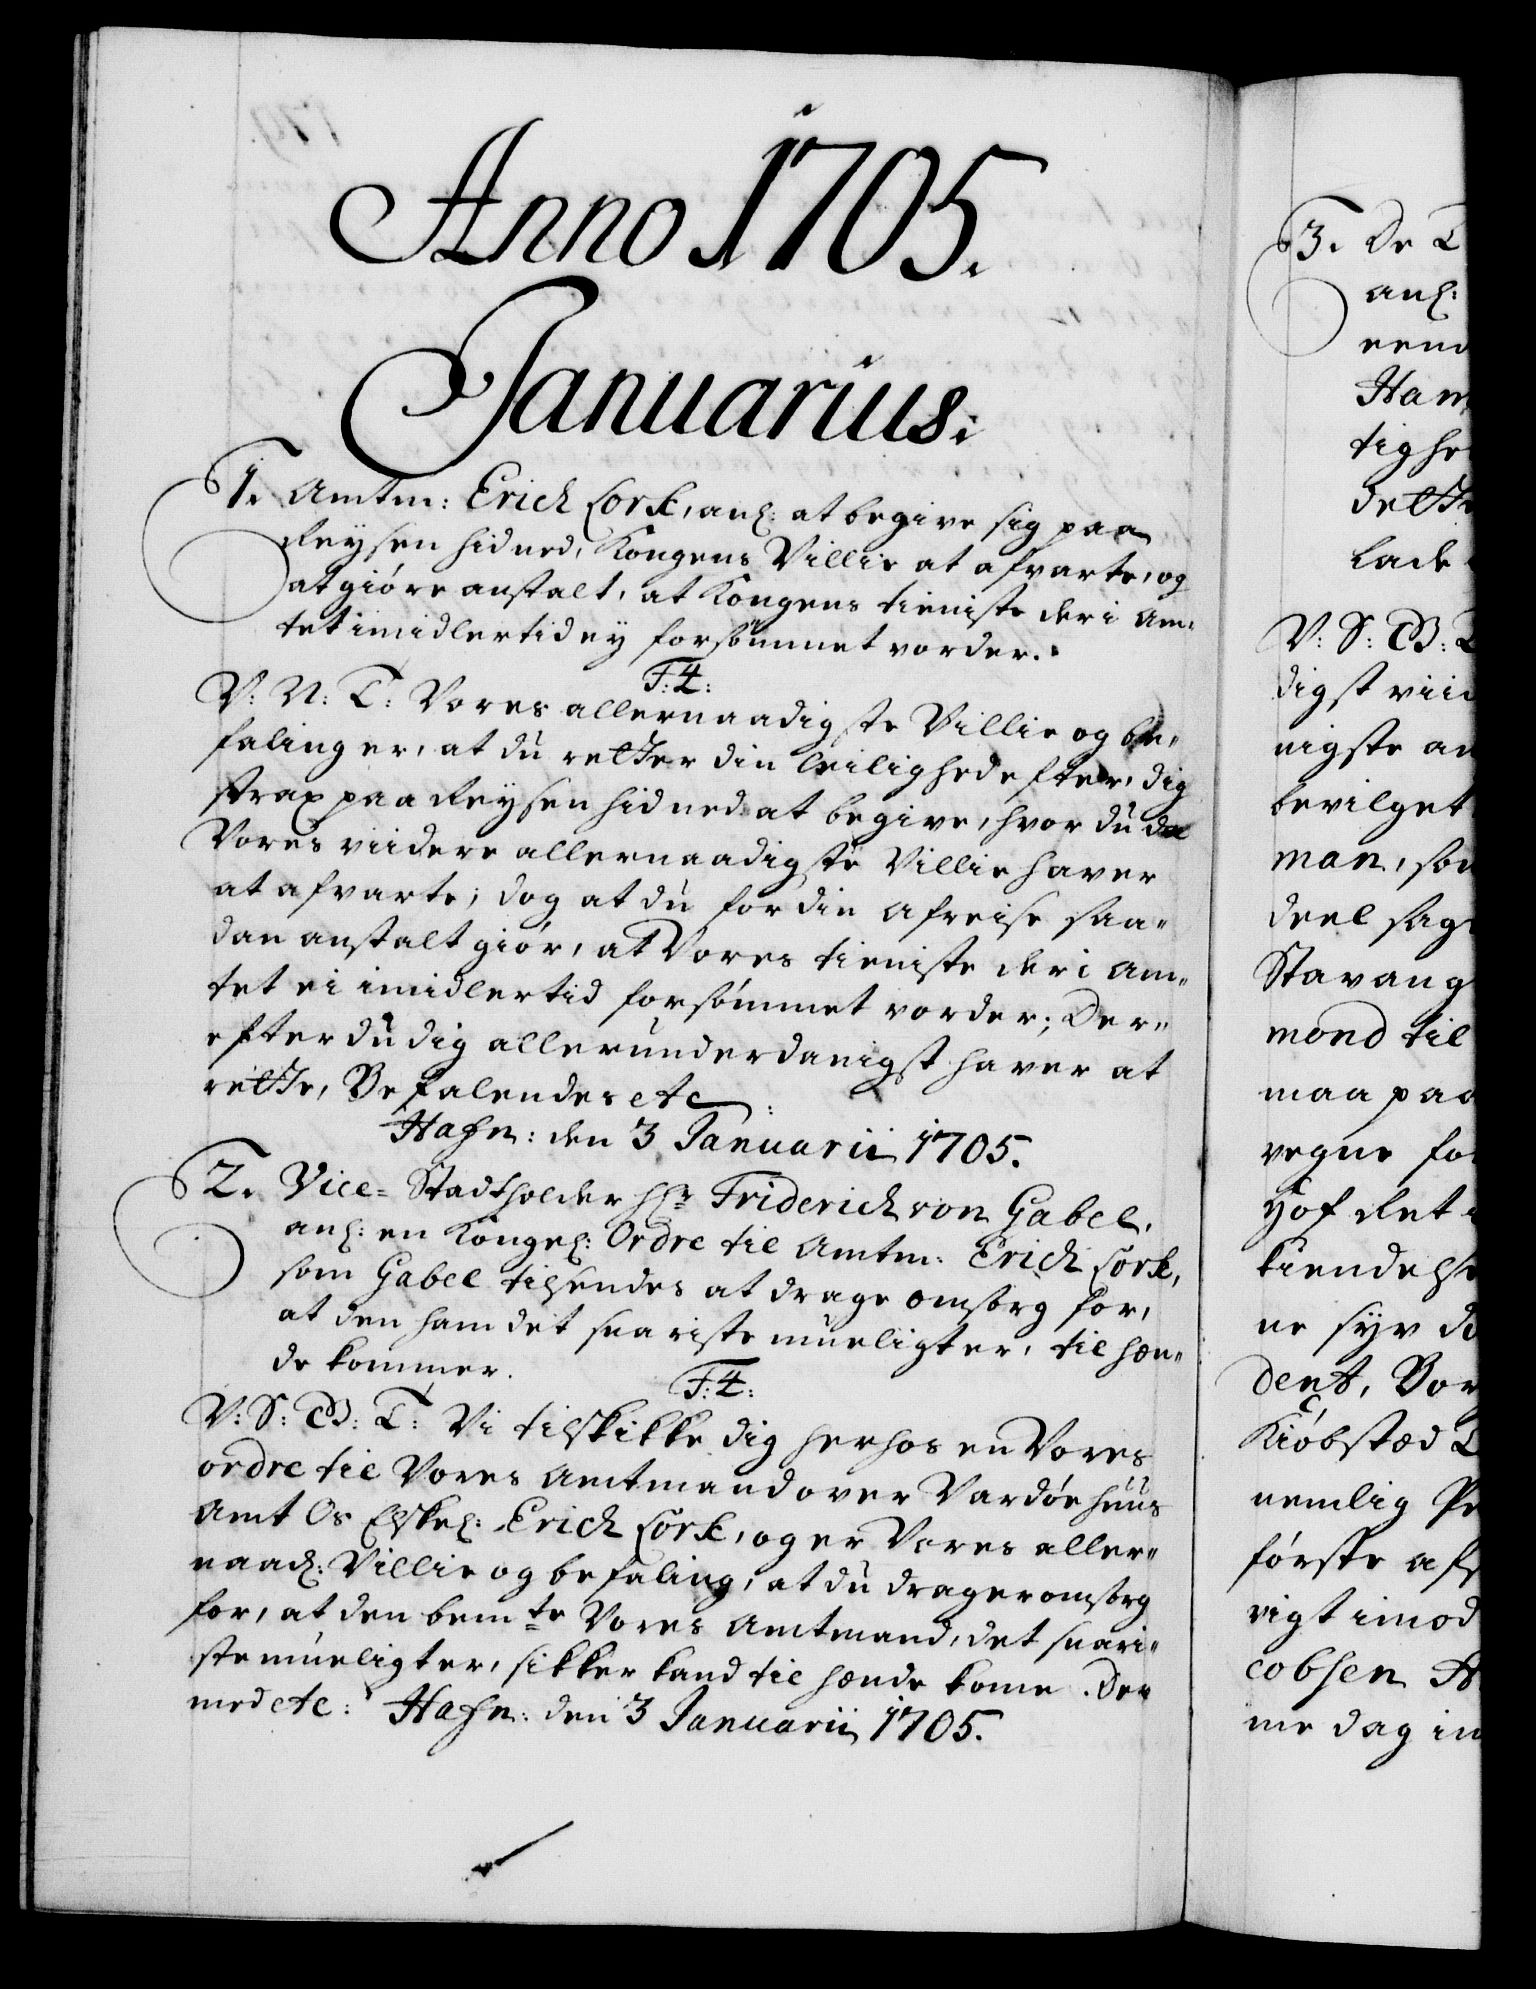 Anno 1705.
Januarius.
1. Amtm: Erich Lork, anl: at begive sig paa
Reysen hid ned, Kongens Villie at afvarte, og
at giöre anstalt, at Kongens tieniste der i Am-
tet imidlertid ey forsömmet vorder.
F: 4:
V: N: T: Vores allernaadigste Villie og be-
faling er, at du retter din leilighed efter, dig
strax paa Reysen hid ned at begive, hvor du da
Vores viidere allernaadigste Villie haver
at afvarte; dog at du for din Afreise saa-
dan anstalt giör, at Vores tieniste der i Am-
tet ei imidlertid forsömmet vorder; Der-
efter du dig allerunderdanigst haver at
rette, Befalendes etc:
Hafn: den 3 Januarii 1705.
2. Vice-Stadtholder Hr: Friderich von Gabel,
anl: en Kongel: Ordre til Amtm: Erich Lork,
som Gabel tilsendes at drage omsorg for,
at den ham det snariste mueligt er, til hæn-
de kommer.
F: 4:
V: S: G: T: Vi tilskikke dig herhos en Vores
ordre til Vores Amtmand over Vardöehuus
Amt Os Elskel: Erich Lork, og er Vores aller-
naad: Villie og befaling, at du drager omsorg
for, at den bemte Vores Amtmand, det snari-
ste mueligt er, sikker kand til hænde kome. Der
med etc: Hafn: den 3 Januarii 1705.
3. De T
anl:
eend
Ham
tighe
dette
lade
V: S: G: T
digst viid
nigste an
bevilget
man, som
deel sag
Stavang
mond til
maa paa
vegne for
Hof Ret
kiendelse
ne syv do
dent, Bor
Kiöbstæd T
nemlig Pe
förste afs
vigt imod
cobsen A
me dag in